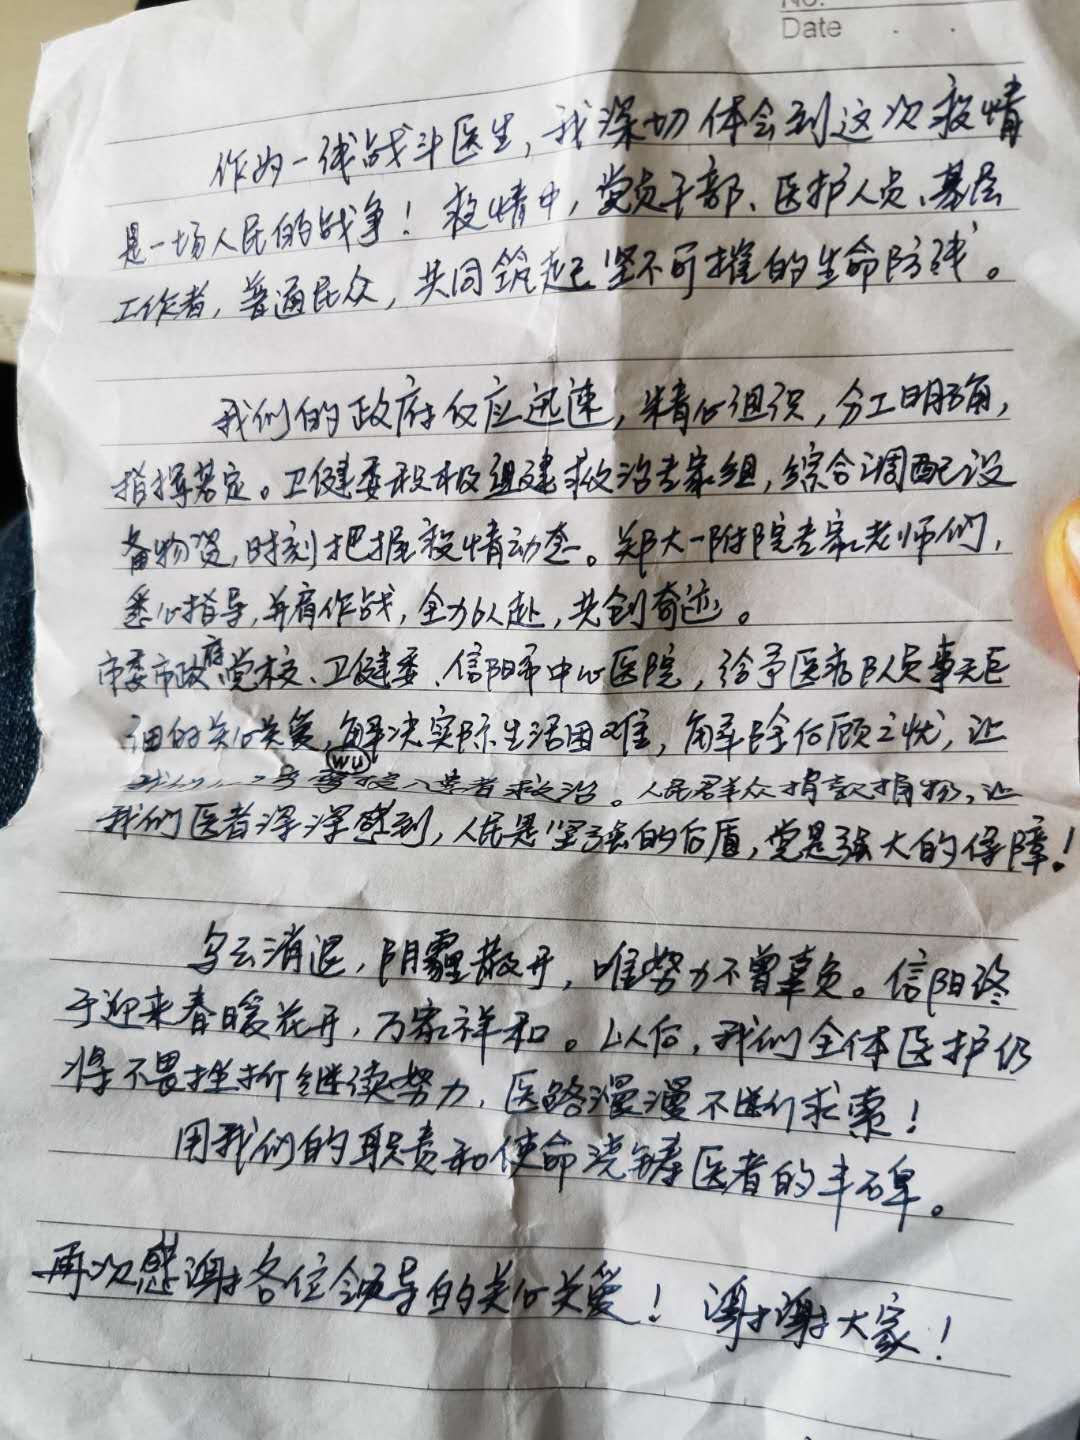 No.
Date
作为一线战斗医生，我深切体会到这次疫情
是一场人民的战争！疫情中，党员干部、医护人员、基层
工作者，普通民众，共同筑起坚不可摧的生命防线。
我们的政府反应迅速，精心组织，分工明确，
指挥若定。卫健委积极组建救治专家组，综合调配设
备物资，时刻把握疫情动态。郑大一附院专家老师们，
悉心指导，并肩作战，全力以赴，共创奇迹。
市委市政府党校、卫健委、信阳市中心医院，给予医疗队员事无巨
细的关心关爱，解决实际生活困难，解除后顾之忧，让
wu
我们 救治。人民群众捐款捐物，让
我们医者深深感到，人民是坚强的后盾，党是强大的保障！
乌云消退，阴霾散开，唯努力不曾辜负。信阳终
于迎来春暖花开，万家祥和。以后，我们全体医护仍
将不畏挫折继续努力，医路漫漫不断求索！
用我们的职责和使命浇铸医者的丰碑。
再次感谢各位领导的关心关爱！谢谢大家！